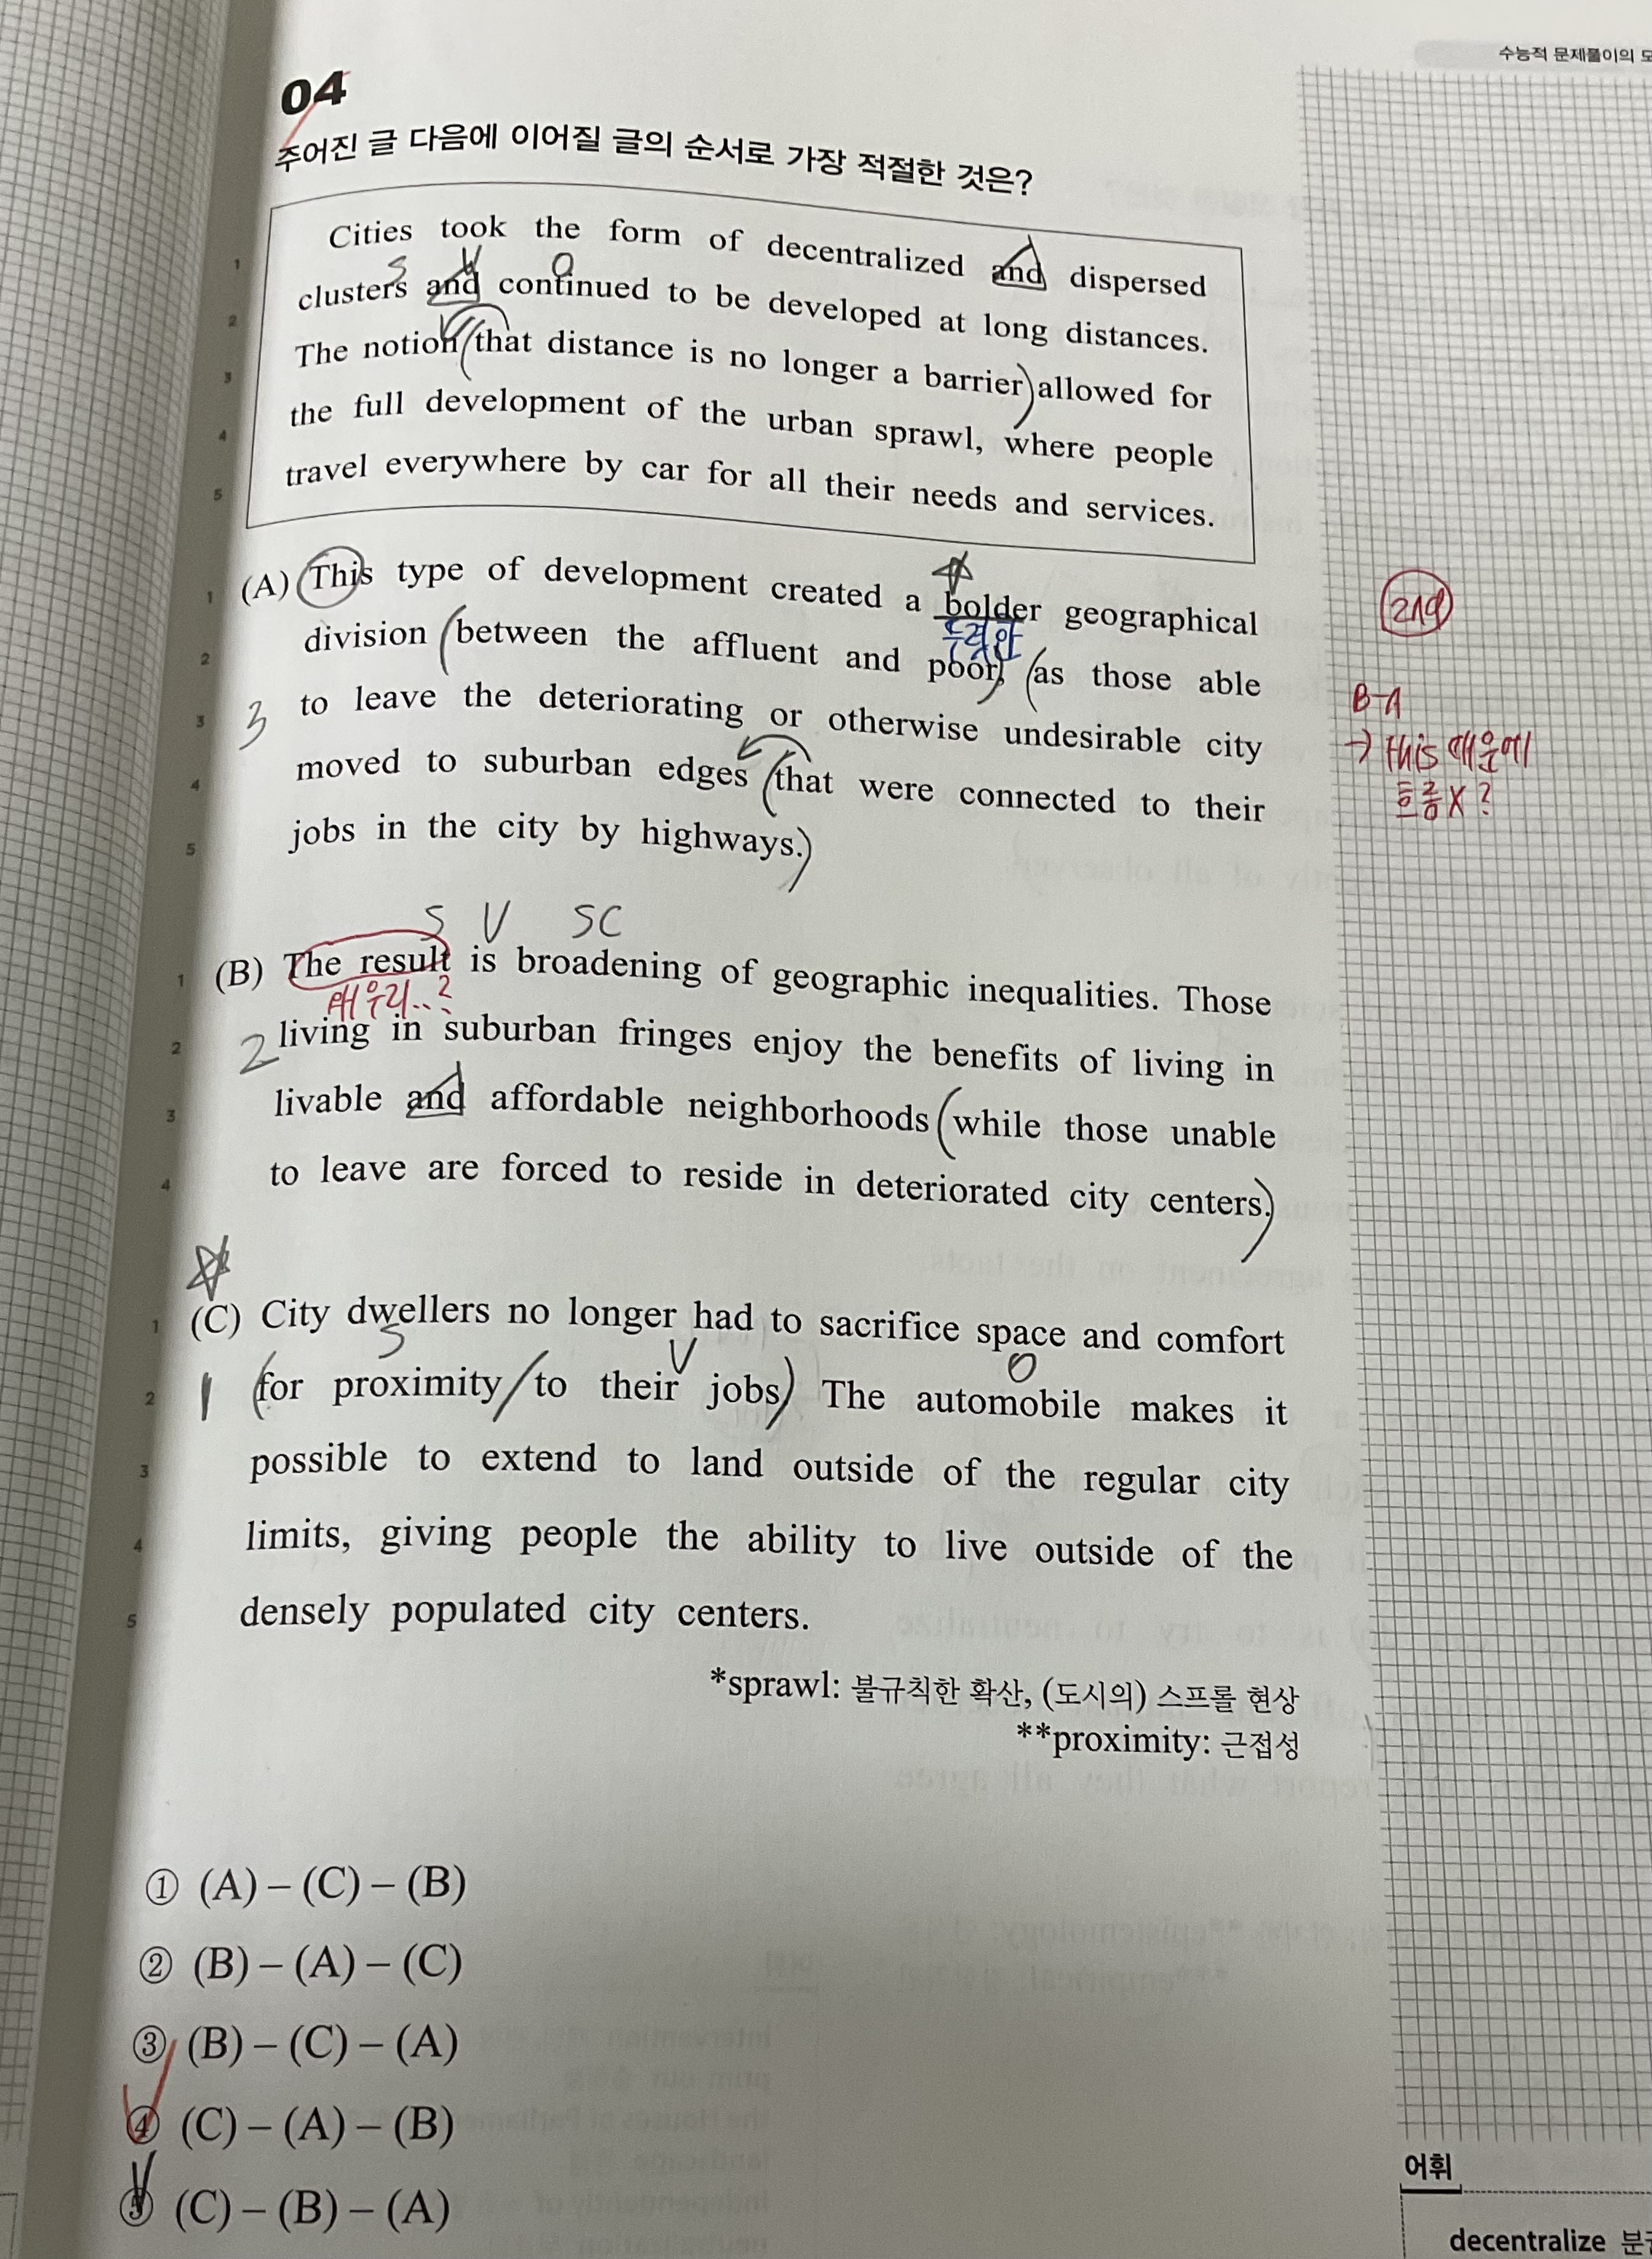 수능적 문제풀이의
04
주어진 글 다음에 이어질 글의 순서로 가장 적절한 것은?
Cities took the form of decentralized and dispersed
S V O
1
clusters and continued to be developed at long distances.
2
The notion (that distance is no longer a barrier) allowed for
3
the full development of the urban sprawl, where people
4
travel everywhere by car for all their needs and services.
5
(A) This type of development created a bolder geographical
1
뚜렷한
division (between the affluent and poor), (as those able
2
to leave the deteriorating or otherwise undesirable city
3
3
moved to suburban edges (that were connected to their
4
jobs in the city by highways.)
5
B-A
→ this 때문에
흐름X?
S V SC
(B) The result is broadening of geographic inequalities. Those
1
living in suburban fringes enjoy the benefits of living in
2
2
livable and affordable neighborhoods (while those unable
3
to leave are forced to reside in deteriorated city centers.)
4
(C) City dwellers no longer had to sacrifice space and comfort
1
S V O
(for proximity/to their jobs) The automobile makes it
1
2
possible to extend to land outside of the regular city
3
limits, giving people the ability to live outside of the
4
densely populated city centers.
5
*sprawl: 불규칙한 확산, (도시의) 스프롤 현상
**proximity: 근접성
① (A) – (C) – (B)
② (B) – (A) – (C)
③ (B) – (C) – (A)
④ (C) – (A) – (B)
⑤ (C) – (B) – (A)
어휘
decentralize